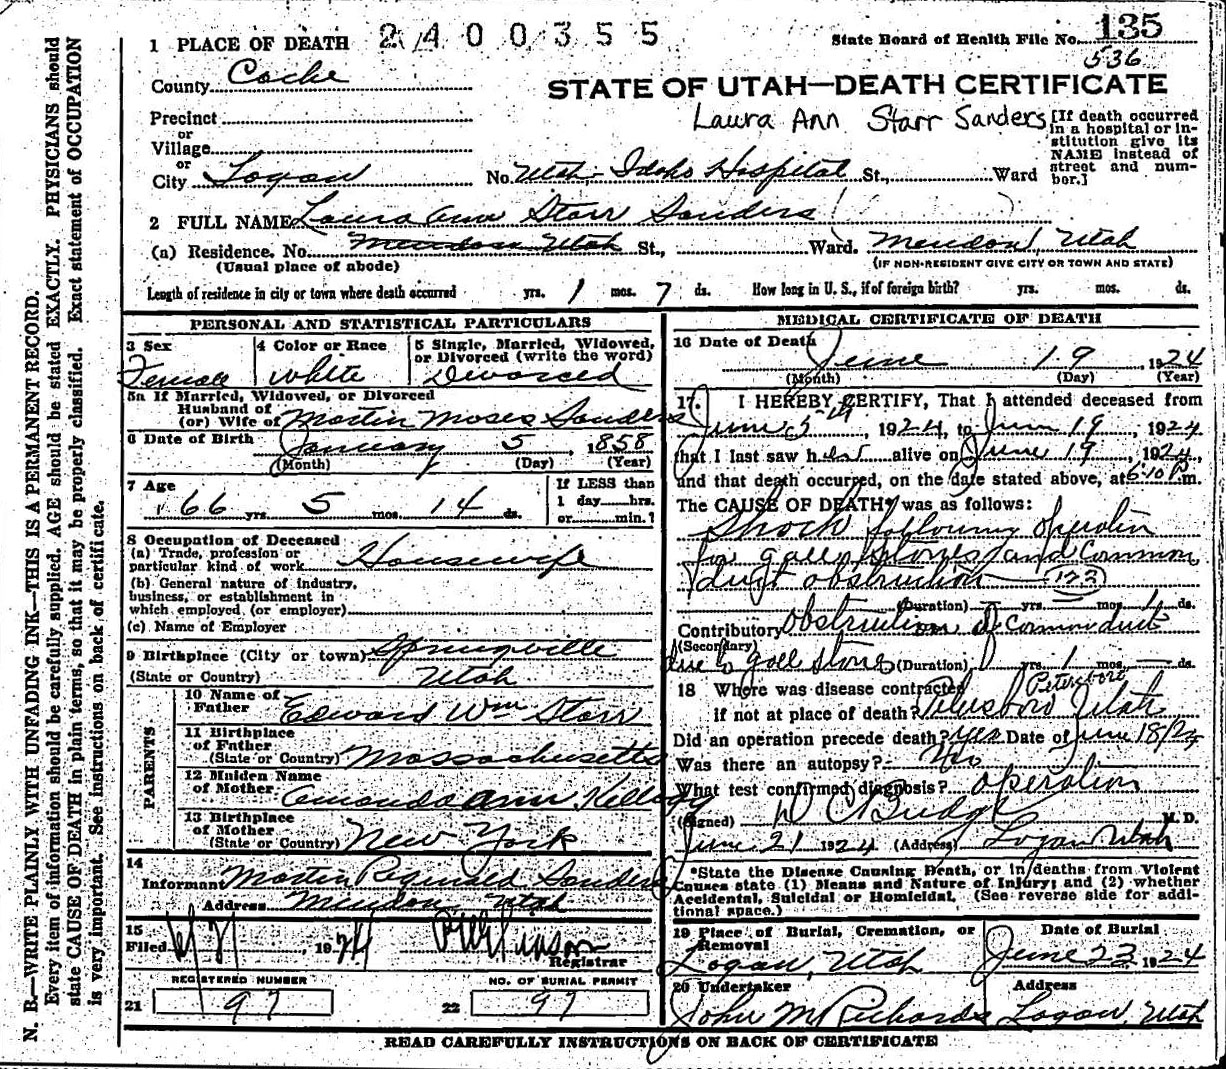 1 PLACE OF DEATH 2400355
State Board of Health File No. 135
536
County Cache
STATE OF UTAH—DEATH CERTIFICATE
Laura Ann Starr Sanders
[If death occurred in a hospital or institution give its NAME instead of street and number.]
Precinct
or
Village
or
City Logan No. Utah-Idaho Hospital St., Ward
2 FULL NAME Laura Ann Starr Sanders ( )
(a) Residence. No. Mendon Utah St., Ward. Mendon, Utah
(Usual place of abode) (IF NON-RESIDENT GIVE CITY OR TOWN AND STATE)
Length of residence in city or town where death occurred yrs. 1 mos. 7 ds. How long in U. S., if of foreign birth? yrs. mos. ds.
PERSONAL AND STATISTICAL PARTICULARS
3 Sex
Female
4 Color or Race
White
5 Single, Married, Widowed, or Divorced (write the word)
Divorced
5a If Married, Widowed, or Divorced
Husband of
(or) Wife of Martin Moses Sanders
6 Date of Birth January 5, 1858
(Month) (Day) (Year)
7 Age
66 yrs. 5 mos. 14 ds.
If LESS than
1 day hrs.
or min.?
8 Occupation of Deceased
(a) Trade, profession or
particular kind of work Housewife
(b) General nature of industry,
business, or establishment in
which employed (or employer)
(c) Name of Employer
9 Birthplace (City or town) Springville
(State or Country) Utah
PARENTS
10 Name of
Father Edward Wm Starr
11 Birthplace
of Father
(State or Country) Massachusetts
12 Maiden Name
of Mother Amanda Ann Kellogg
13 Birthplace
of Mother
(State or Country) New York
14
Informant Martin Reginald Sanders
Address Mendon Utah
15
Filed 6/21, 1924
Registrar
REGISTERED NUMBER
21 97
NO. OF BURIAL PERMIT
22 97
MEDICAL CERTIFICATE OF DEATH
16 Date of Death June 19, 1924
(Month) (Day) (Year)
17. I HEREBY CERTIFY, That I attended deceased from
June 5th, 1924, to June 19, 1924
that I last saw her alive on June 19, 1924,
and that death occurred, on the date stated above, at 6:10 P.m.
The CAUSE OF DEATH* was as follows:
Shock following operation
for gall stones and common
duct obstruction (123)
(Duration) yrs. mos. 1 ds.
Contributory obstruction of common duct
(Secondary)
due to gall stones (Duration) yrs. 1 mos. — ds.
18 Where was disease contracted Petersboro
if not at place of death? Petersboro Utah
Did an operation precede death? yes Date of June 18/24
Was there an autopsy? No
What test confirmed diagnosis? operation
(Signed) D C Budge M. D.
June 21 1924 (Address) Logan Utah
*State the Disease Causing Death, or in deaths from Violent
Causes state (1) Means and Nature of Injury; and (2) whether
Accidental, Suicidal or Homicidal. (See reverse side for addi-
tional space.)
19 Place of Burial, Cremation, or
Removal
Logan, Utah
Date of Burial
June 23, 1924
20 Undertaker
John M Richards
Address
Logan, Utah
READ CAREFULLY INSTRUCTIONS ON BACK OF CERTIFICATE
N. B.—WRITE PLAINLY WITH UNFADING INK—THIS IS A PERMANENT RECORD.
Every item of information should be carefully supplied. AGE should be stated EXACTLY. PHYSICIANS should
state CAUSE OF DEATH in plain terms, so that it may be properly classified. Exact statement of OCCUPATION
is very important. See instructions on back of certificate.